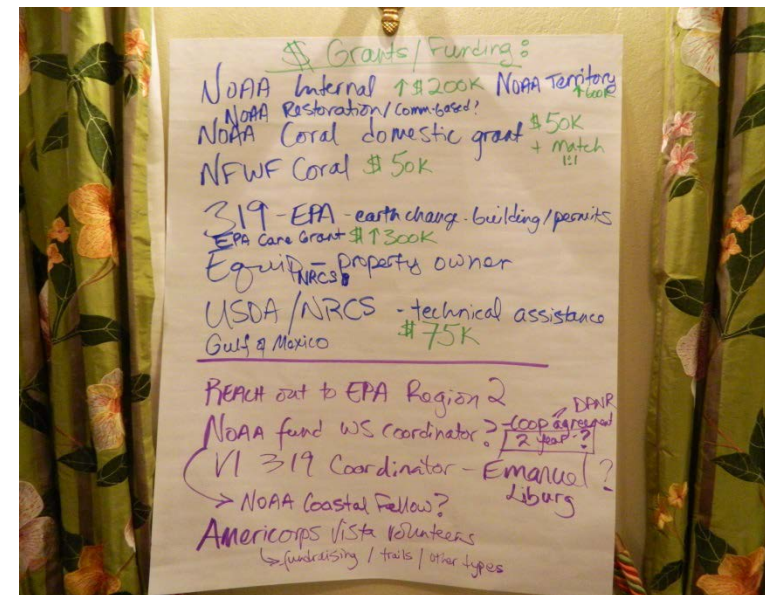 $ Grants/Funding:
NOAA Internal ↑$200K NOAA Territory
↑600K
NOAA Restoration/Comm-based?
NOAA Coral domestic grant $50K
+ match
1:1
NFWF Coral $50K
319-EPA-earth change-building/permits
EPA Care Grant $↑300K
Equip - property owner
NRCS
USDA/NRCS - technical assistance
$75K
Gulf of Mexico
REACH out to EPA Region 2
DPNR
NOAA fund WS coordinator? - Coop agreement
2 year-?
VI 319 Coordinator - Emanuel?
Liburg
→ NOAA Coastal Fellow?
Americorps Vista Volunteers
↳ fundraising / trails / other types